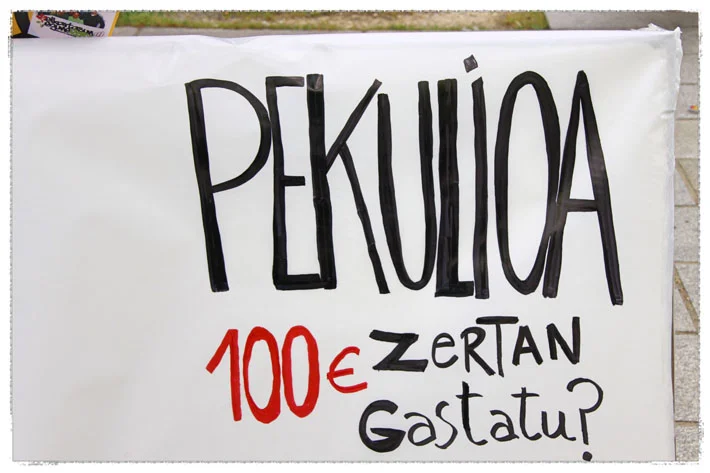 PEKULiOA
100€ ZeRTAN
Gastatu?